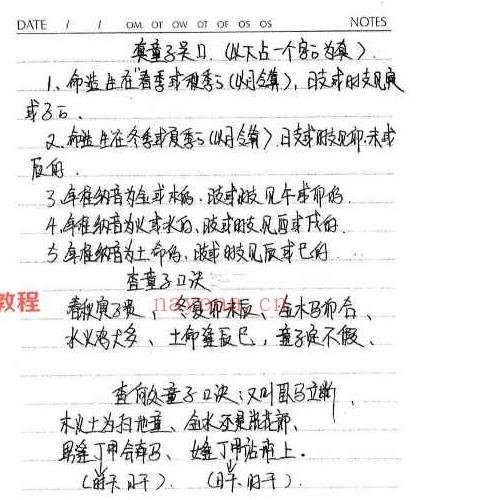 DATE / / OM. OT OW OT OF OS OS NOTES
真童子 口.(以下占一个字 为真).
1、命造生在"春季或秋季 (以月令算),日支或时支见寅
或子 .
2、命造生在冬季或夏季 (以月令算)日支或时支见卯.未或
辰的.
3.年柱纳音为金或木的.日支或时支见午或卯的.
4.年柱纳音为火或水的.日支或时支见酉或戌的.
5.年柱纳音为土命的.日支或时支见辰或巳的.
查童子口决
教程
春秋寅子贵、冬夏卯未辰、金木马卯合、
水火鸡犬多、土命逢辰巳,童子定不假、
查何处童子口决:又叫 马立断,
木火土为扫地童、金水还是 花郎、
男逢丁甲合 马、女逢丁甲站 上.
(时干 日干). (时干 日干).